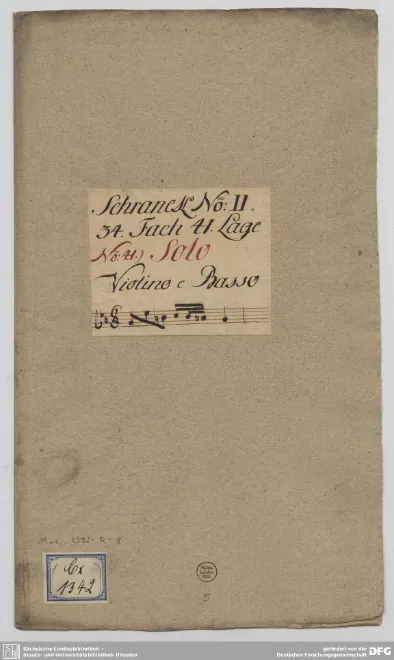 Schranck No: II.
34. Fach 41. Lage
No: 41.) Solo
Violino e Basso
Mus. 2392-R-8
Cx
1342
5
Sächsische Landesbibliothek –
Staats- und Universitätsbibliothek Dresden
gefördert von der
Deutschen Forschungsgemeinschaft DFG